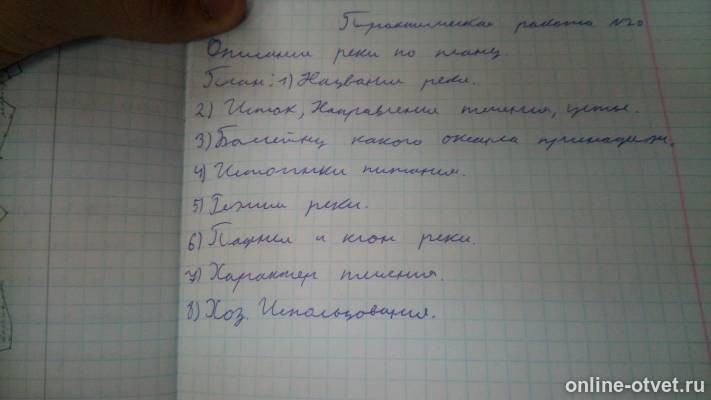 Практическая работа №20
Описании реки по плану.
План: 1) Названии реки.
2) Исток, Направления течения, устье.
3) Бассейну какого океана принадлеж.
4) Источники питания.
5) Режим реки.
6) Падние и клон реки.
7) Характер течения.
8) Хоз. Использования.
online-otvet.ru